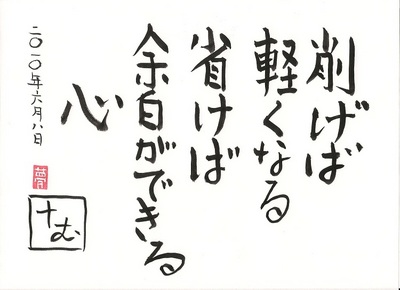 削げば
軽くなる
省けば
余白ができる
心
二〇一〇年六月八日
夢
十む